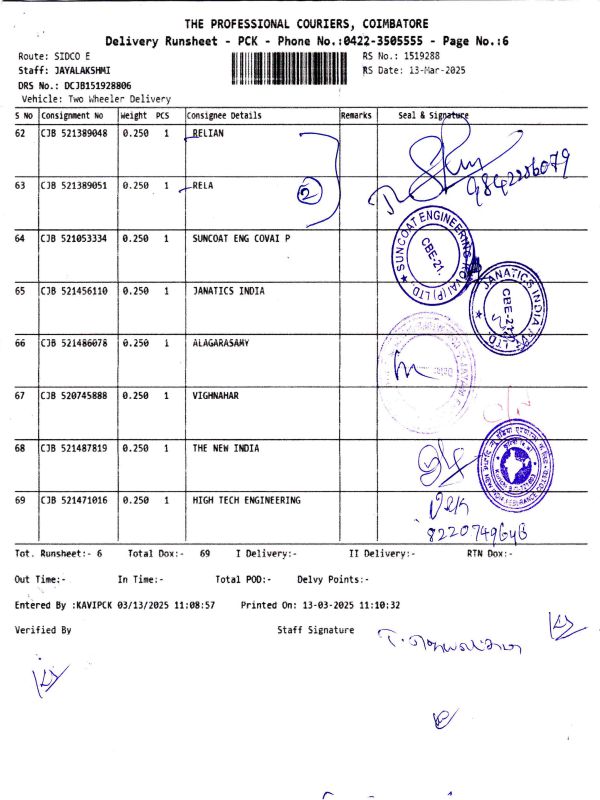 THE PROFESSIONAL COURIERS, COIMBATORE
Delivery Runsheet - PCK - Phone No.:0422-3505555 - Page No.:6
Route: SIDCO E
RS No.: 1519288
Staff: JAYALAKSHMI
RS Date: 13-Mar-2025
DRS No.: DCJB151928806
Vehicle: Two Wheeler Delivery
S No Consignment No Weight PCS Consignee Details Remarks Seal & Signature
62 CJB 521389048 0.250 1 RELIAN
63 CJB 521389051 0.250 1 RELA
2
9842286079
64 CJB 521053334 0.250 1 SUNCOAT ENG COVAI P
SUNCOAT ENGINEERING COVAI (P) LTD.,
CBE-21.
65 CJB 521456110 0.250 1 JANATICS INDIA
JANATICS INDIA PVT. LTD.
CBE-21
66 CJB 521486078 0.250 1 ALAGARASAMY
67 CJB 520745888 0.250 1 VIGHNAHAR
68 CJB 521487819 0.250 1 THE NEW INDIA
69 CJB 521471016 0.250 1 HIGH TECH ENGINEERING
Tot. Runsheet:- 6 Total Dox:- 69 I Delivery:- II Delivery:- RTN Dox:-
Out Time:- In Time:- Total POD:- Delvy Points:-
Entered By :KAVIPCK 03/13/2025 11:08:57 Printed On: 13-03-2025 11:10:32
Verified By Staff Signature